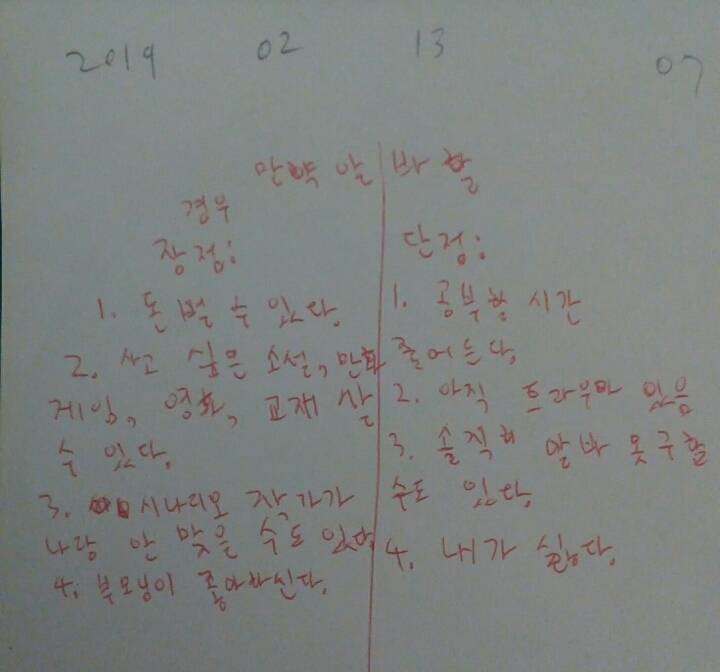 2019 02 13 07
만약 알바할
경우
장점:
1. 돈 벌 수 있다.
2. 사고 싶은 소설, 만화
게임, 영화, 교재 살
수 있다.
3. 시나리오 작가가
나랑 안 맞을 수도 있다
4. 부모님이 좋아하신다.
단점:
1. 공부할 시간
줄어든다.
2. 아직 트라우마 있음
3. 솔직히 알바 못구할
수도 있다.
4. 내가 싫다.